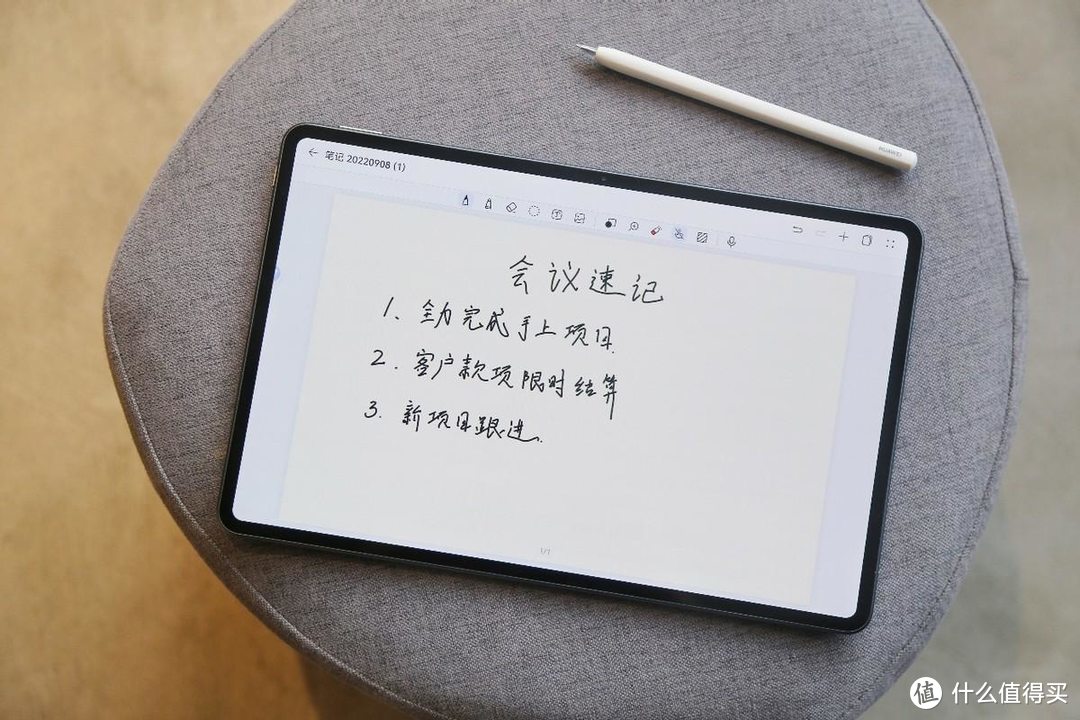 HUAWEI
笔记 20220908 (1)
会议速记
1、全力完成手上项目.
2. 客户款项限时结算
3. 新项目跟进.
1/1
值 什么值得买